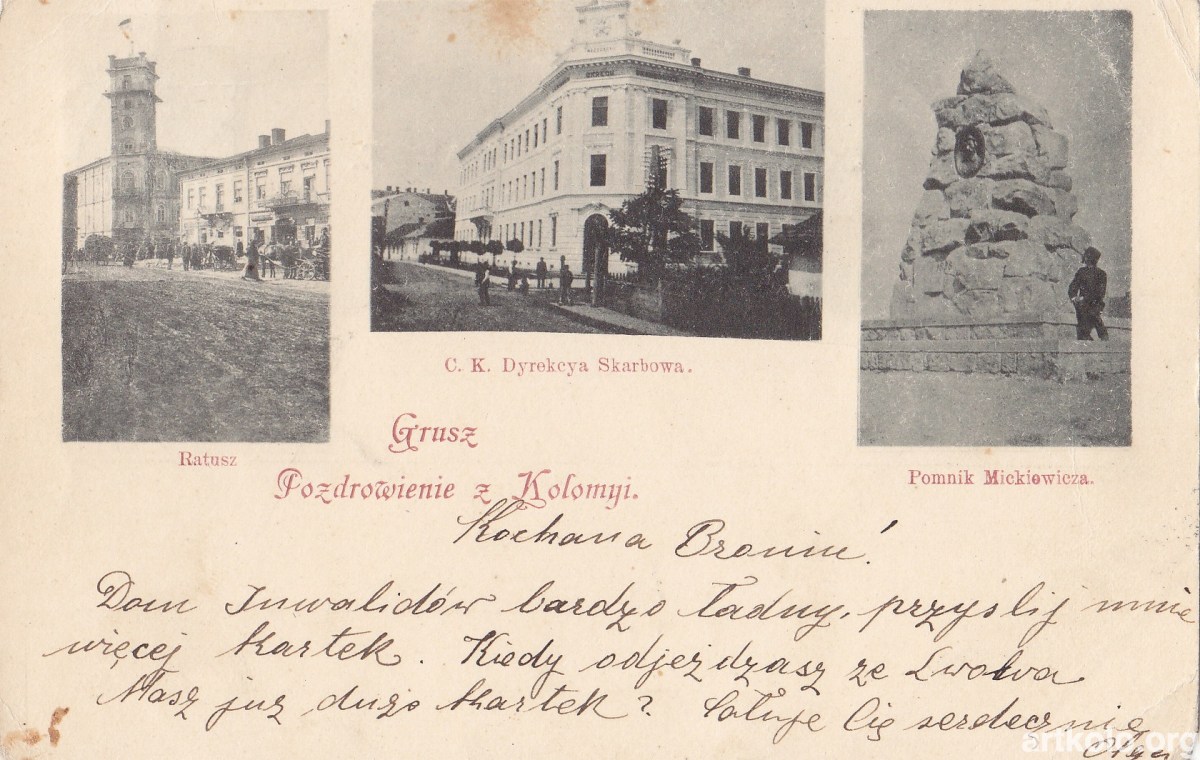 Ratusz
C. K. Dyrekcya Skarbowa.
Pomnik Mickiewicza.
Grusz
Pozdrowienie z Kolomyi.
Kochana Broniu!
Dom Inwalidów bardzo ładny, przyslij mnie
więcej kartek. Kiedy odjeżdzasz ze Lwowa
Masz juz dużo kartek? Całuje Cię serdecznie
Olga
artkolo.org